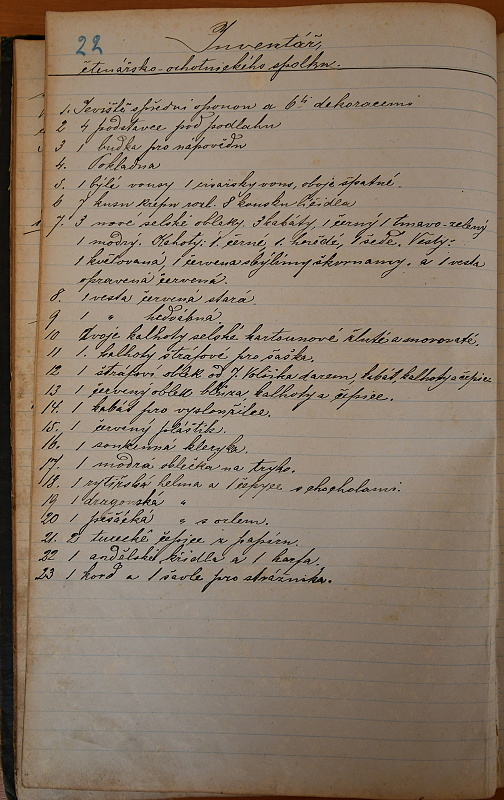 22
Inventář,
čtenářsko-ochotnického spolku.
1. Jeviště s přední oponou a 6ti dekoracemi
2 4 podstavce pod podlahu
3 1 budka pro nápovědu
4. Pokladna
5. 1 bílé vousy 1 císařsky vous, oboje špatné.
6 7 kusu krepu 8 kousku líčidla
7. 3 nové selské obleky. 3 kabáty, 1 černý 1 tmavo-zelený
1 modrý. Kalhoty: 1. černé, 1. hnědé, 1 šedé. Vesty:
1 květovaná 1 červena s bílími škornamy. a 1 vesta
opravená červená.
8. 1 vesta červena stará
9 1 " hedvábna
10 Dvoje kalhoty selské kartounové žluté a morovaté.
11 1. kalhoty štrafové pro šaška.
12 1 štrafoví oblek od J. Vološka darem, kabát kalhoty a čepice
13 1 červený oblek blůza, kalhoty a čepice.
14. 1 kabát pro vysloužilce.
15. 1 červený pláštík.
16. 1 soukenná kleryka.
17. 1 modrá oblečka na tryko.
18. 1 rytířska helma a 1 čepyce s chocholami.
19 1 dragonská "
20 1 pěšácká " s orlem.
21. 2 turecké čepice z papíru.
22 1 andělské křídla a 1 harfa.
23 1 kord a 1 šavle pro strážníka.